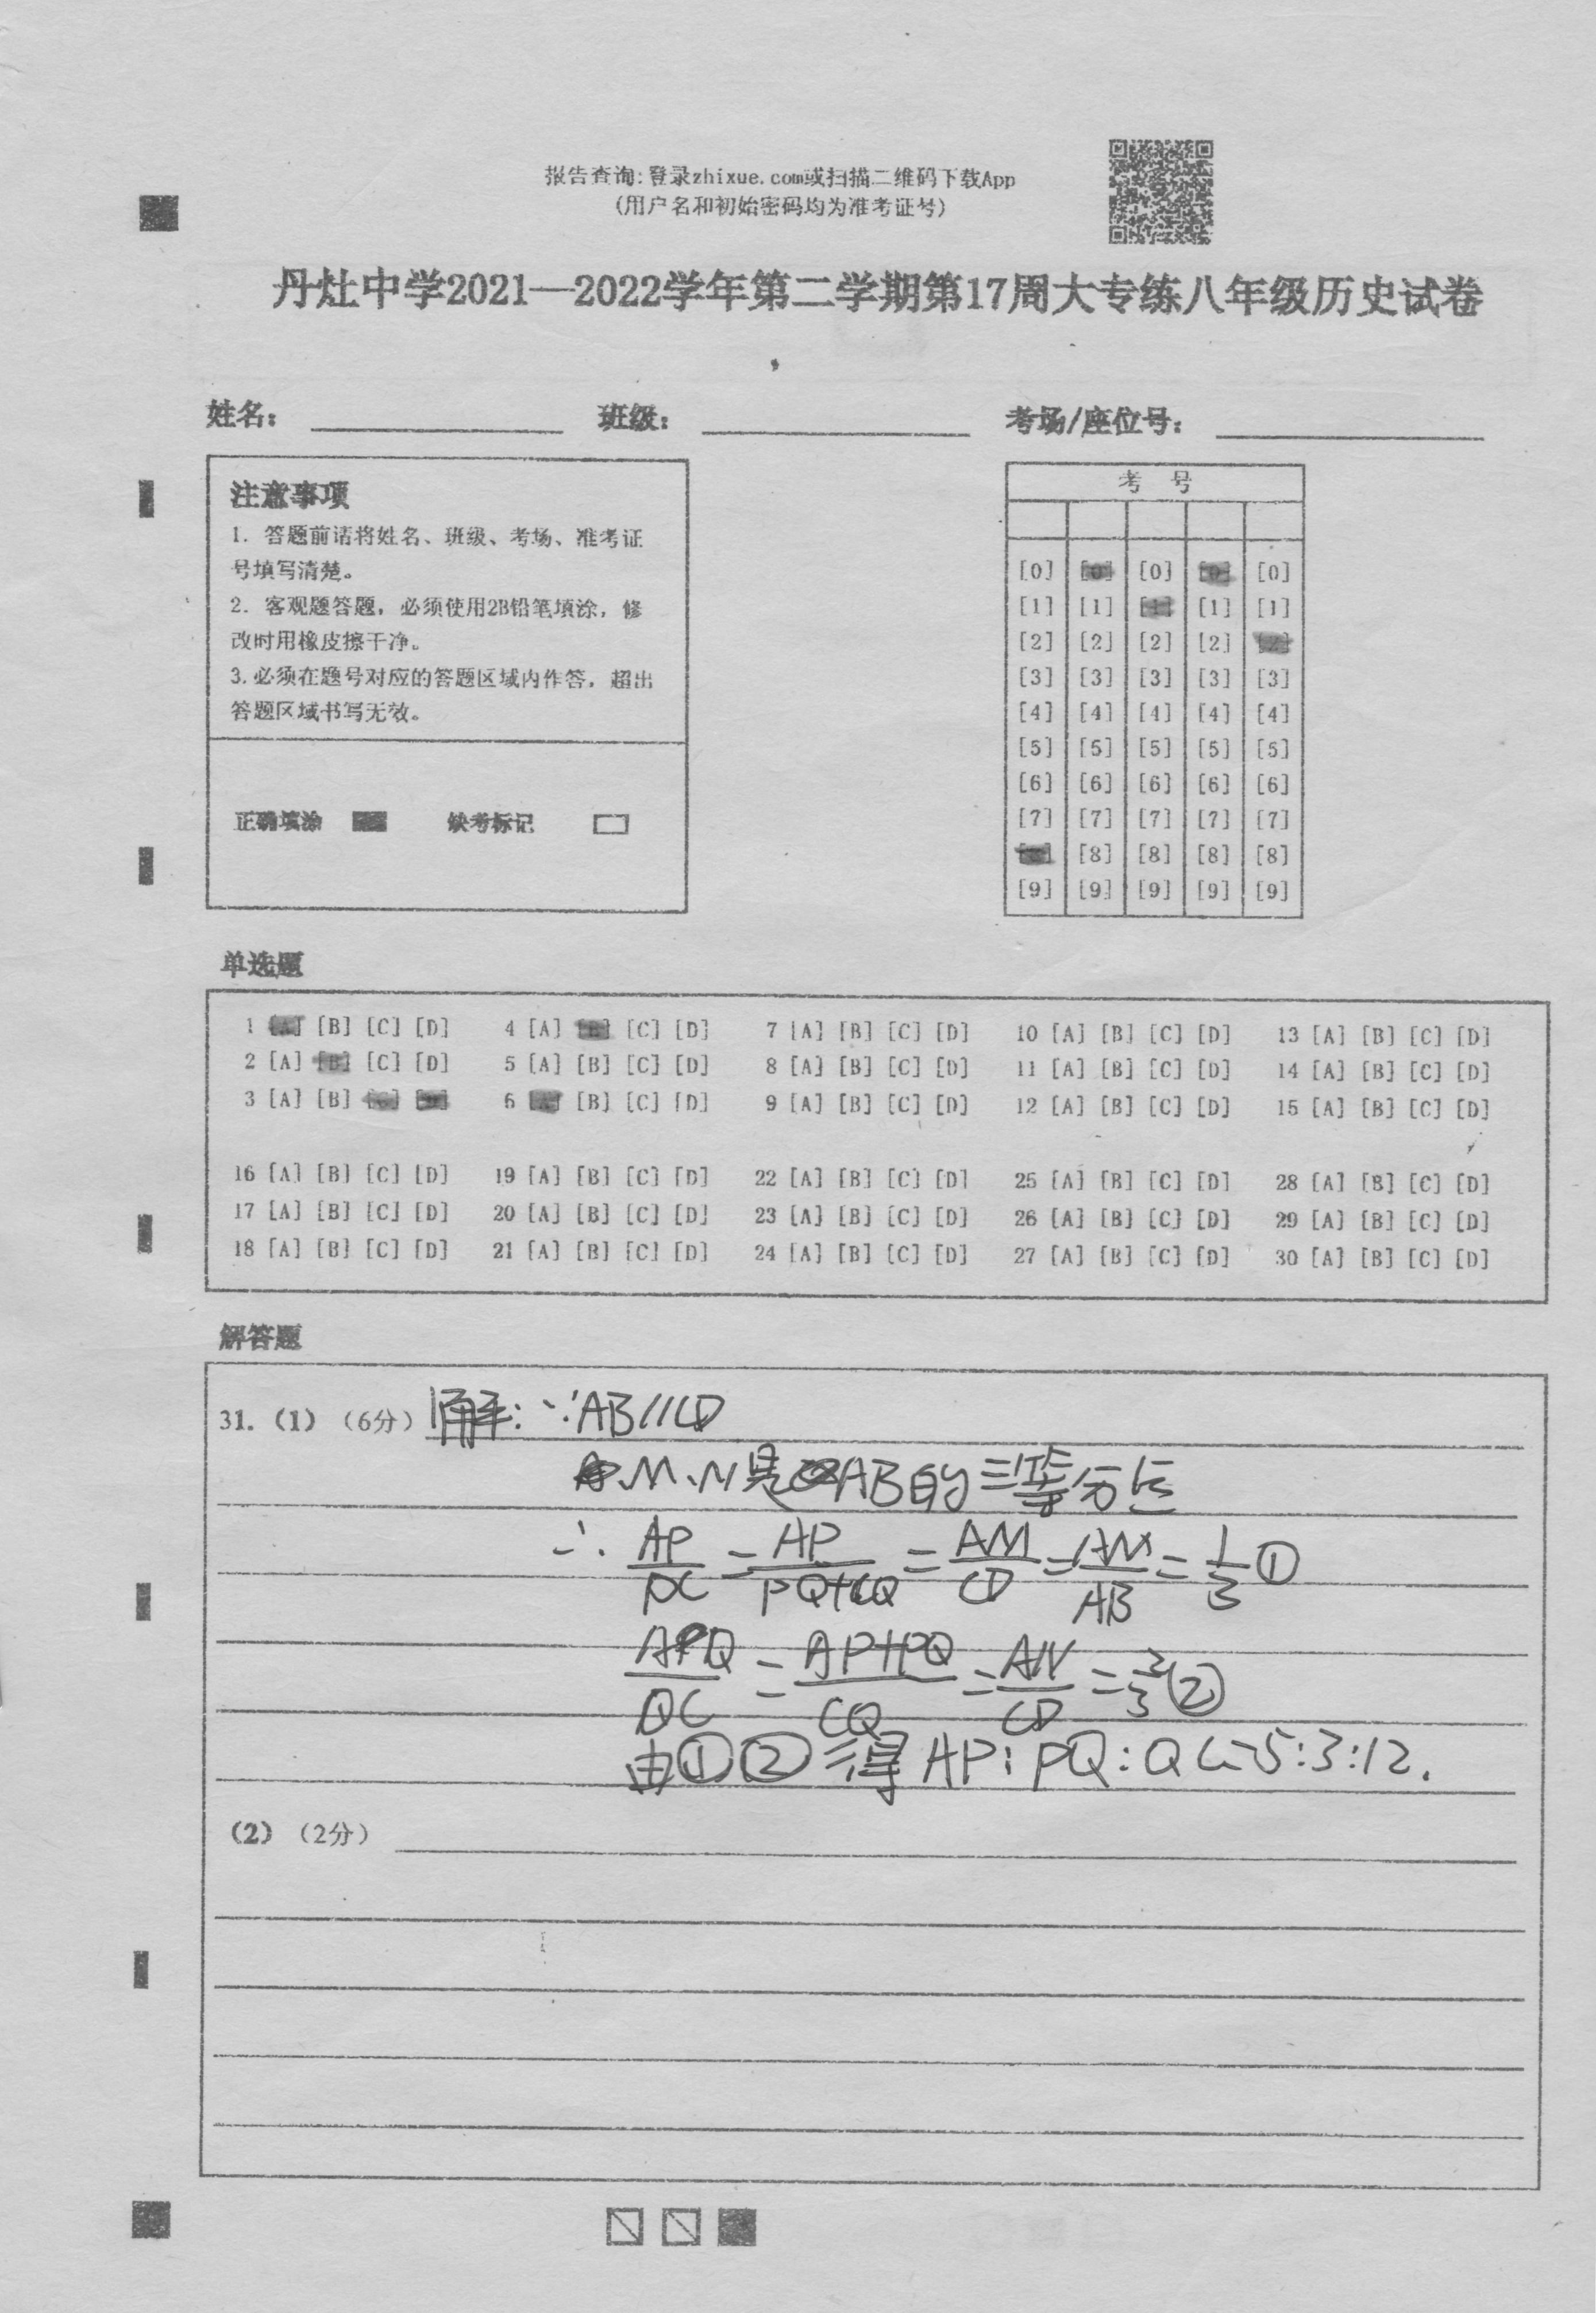 报告查询:登录zhixue.com或扫描二维码下载App
(用户名和初始密码均为准考证号)
丹灶中学2021—2022学年第二学期第17周大专练八年级历史试卷
姓名: 班级: 考场/座位号:
注意事项
1. 答题前请将姓名、班级、考场、准考证
号填写清楚。
2. 客观题答题，必须使用2B铅笔填涂，修
改时用橡皮擦干净。
3.必须在题号对应的答题区域内作答，超出
答题区域书写无效。
正确填涂 缺考标记
考 号
[0] [0] [0] [0] [0]
[1] [1] [1] [1] [1]
[2] [2] [2] [2] [2]
[3] [3] [3] [3] [3]
[4] [4] [4] [4] [4]
[5] [5] [5] [5] [5]
[6] [6] [6] [6] [6]
[7] [7] [7] [7] [7]
[8] [8] [8] [8]
[9] [9] [9] [9] [9]
单选题
1 [A] [B] [C] [D] 4 [A] [B] [C] [D] 7 [A] [B] [C] [D] 10 [A] [B] [C] [D] 13 [A] [B] [C] [D]
2 [A] [B] [C] [D] 5 [A] [B] [C] [D] 8 [A] [B] [C] [D] 11 [A] [B] [C] [D] 14 [A] [B] [C] [D]
3 [A] [B] [C] [D] 6 [A] [B] [C] [D] 9 [A] [B] [C] [D] 12 [A] [B] [C] [D] 15 [A] [B] [C] [D]
16 [A] [B] [C] [D] 19 [A] [B] [C] [D] 22 [A] [B] [C] [D] 25 [A] [B] [C] [D] 28 [A] [B] [C] [D]
17 [A] [B] [C] [D] 20 [A] [B] [C] [D] 23 [A] [B] [C] [D] 26 [A] [B] [C] [D] 29 [A] [B] [C] [D]
18 [A] [B] [C] [D] 21 [A] [B] [C] [D] 24 [A] [B] [C] [D] 27 [A] [B] [C] [D] 30 [A] [B] [C] [D]
解答题
31. (1) (6分) 解: ∵AB//CD
M、N是AB的三等分点
∴ AP/PC = AP/PQ+CQ = AM/CD = AM/AB = 1/3 ①
APQ/QC = AP+PQ/CQ = AN/CD = 2/3 ②
由①②得AP:PQ:QC=5:3:12.
(2) (2分)